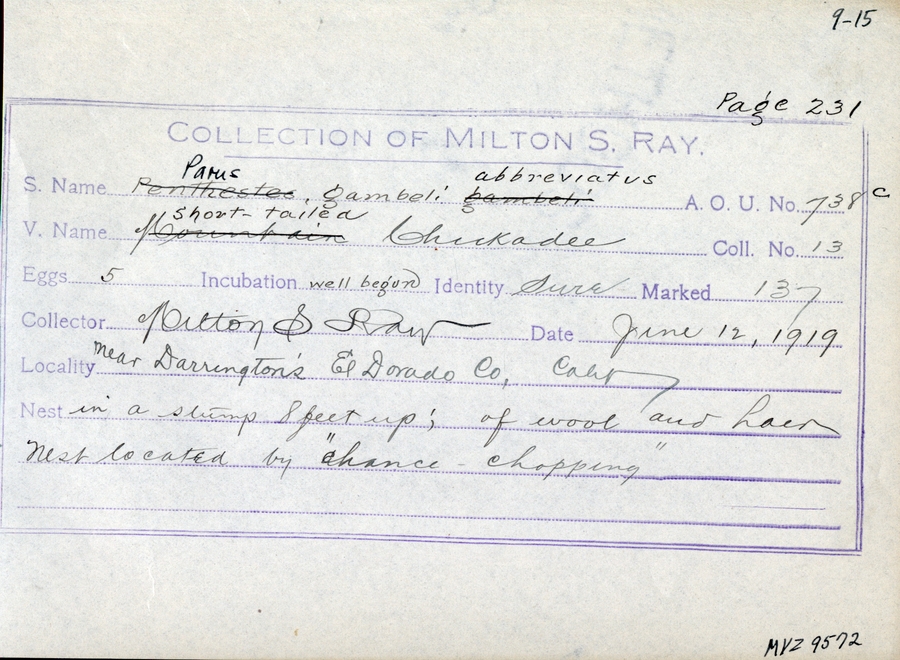 9-15
Page 231
COLLECTION OF MILTON S. RAY.
Parus abbreviatus
S. Name Penthestes, gambeli gambeli A. O. U. No. 738 c
short-tailed
V. Name Mountain Chickadee Coll. No. 13
Eggs 5 Incubation well begun Identity Sure Marked 137
Collector Milton S Ray Date June 12, 1919
Locality near Darrington's El Dorado Co, Calif
Nest in a stump 8 feet up; of wool and hair
Nest located by "chance - chopping"
MVZ 9572